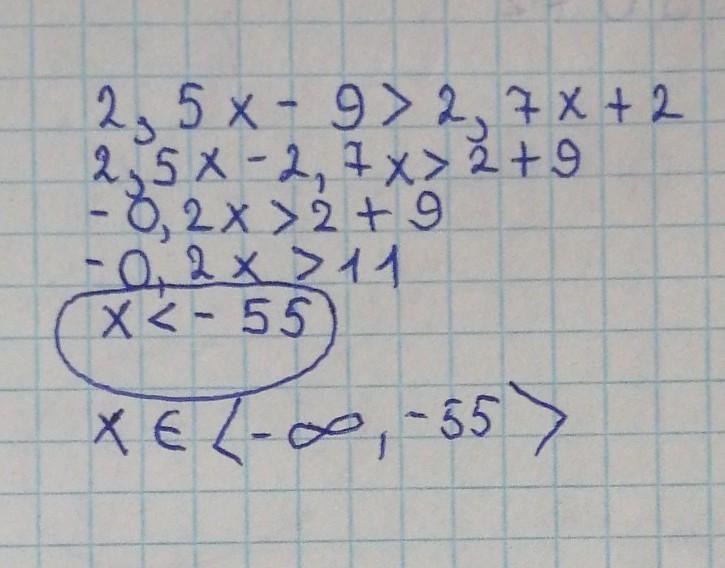 2,5x - 9 > 2,7x + 2
2,5x - 2,7x > 2 + 9
-0,2x > 2 + 9
-0,2x > 11
x < - 55
x ∈ ⟨-∞, -55⟩